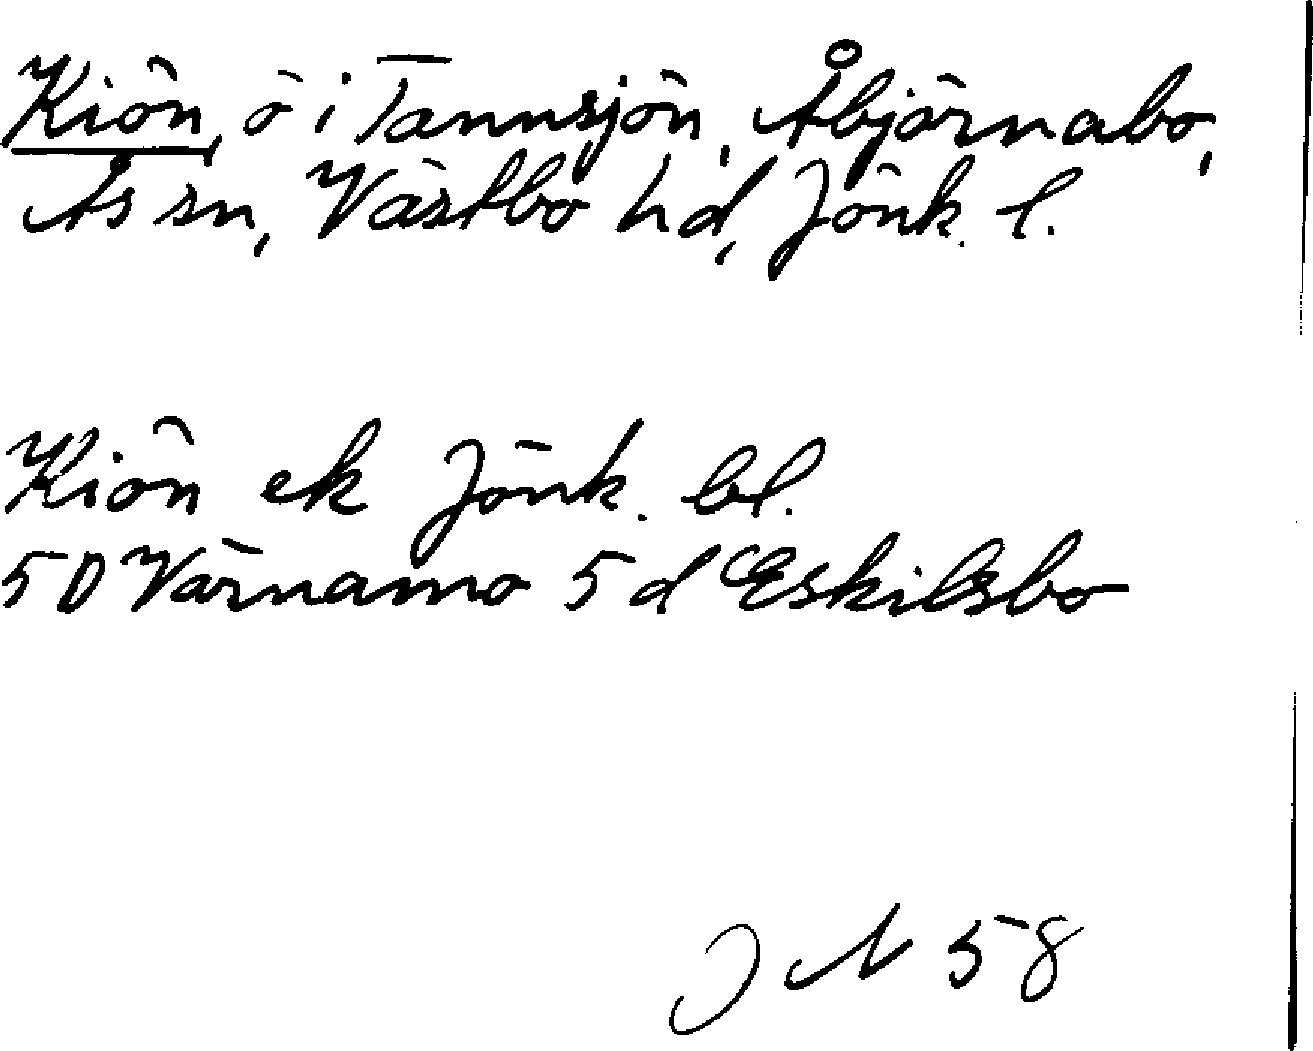 Kiön, ö i Tannsjön, Åbjörnabo,
Ås sn, Västbo hd, Jönk. l.
Kiön ek Jönk. bl.
5D Värnamo 5d Eskilsbo
JN 58